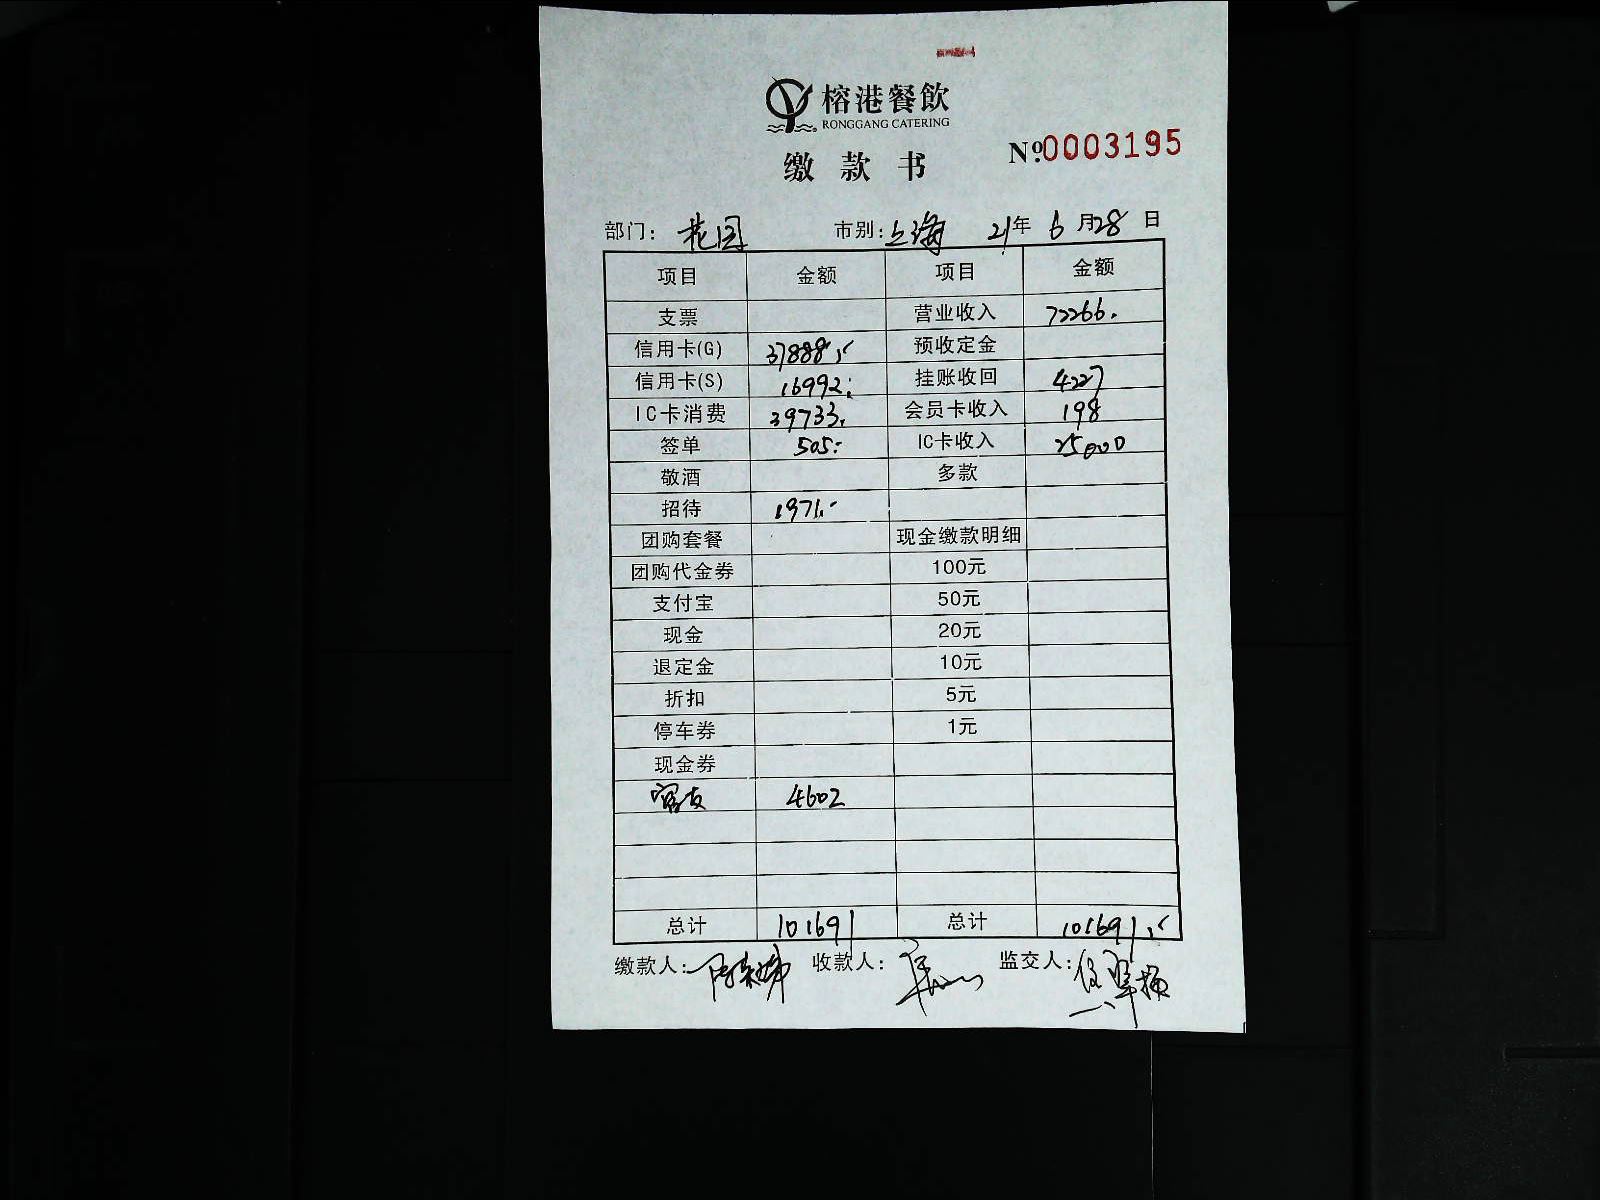 榕港餐飲
RONGGANG CATERING
缴款书 №0003195
部门: 花园 市别: 上海 21年 6月28日
项目 金额 项目 金额
支票 营业收入 72266.
信用卡(G) 37888.- 预收定金
信用卡(S) 16992.- 挂账收回 4227
IC卡消费 39733. 会员卡收入 198
签单 505.- IC卡收入 25000
敬酒 多款
招待 1971.-
团购套餐 现金缴款明细
团购代金券 100元
支付宝 50元
现金 20元
退定金 10元
折扣 5元
停车券 1元
现金券
4602
总计 101691 总计 101691.-
缴款人: 收款人: 监交人: